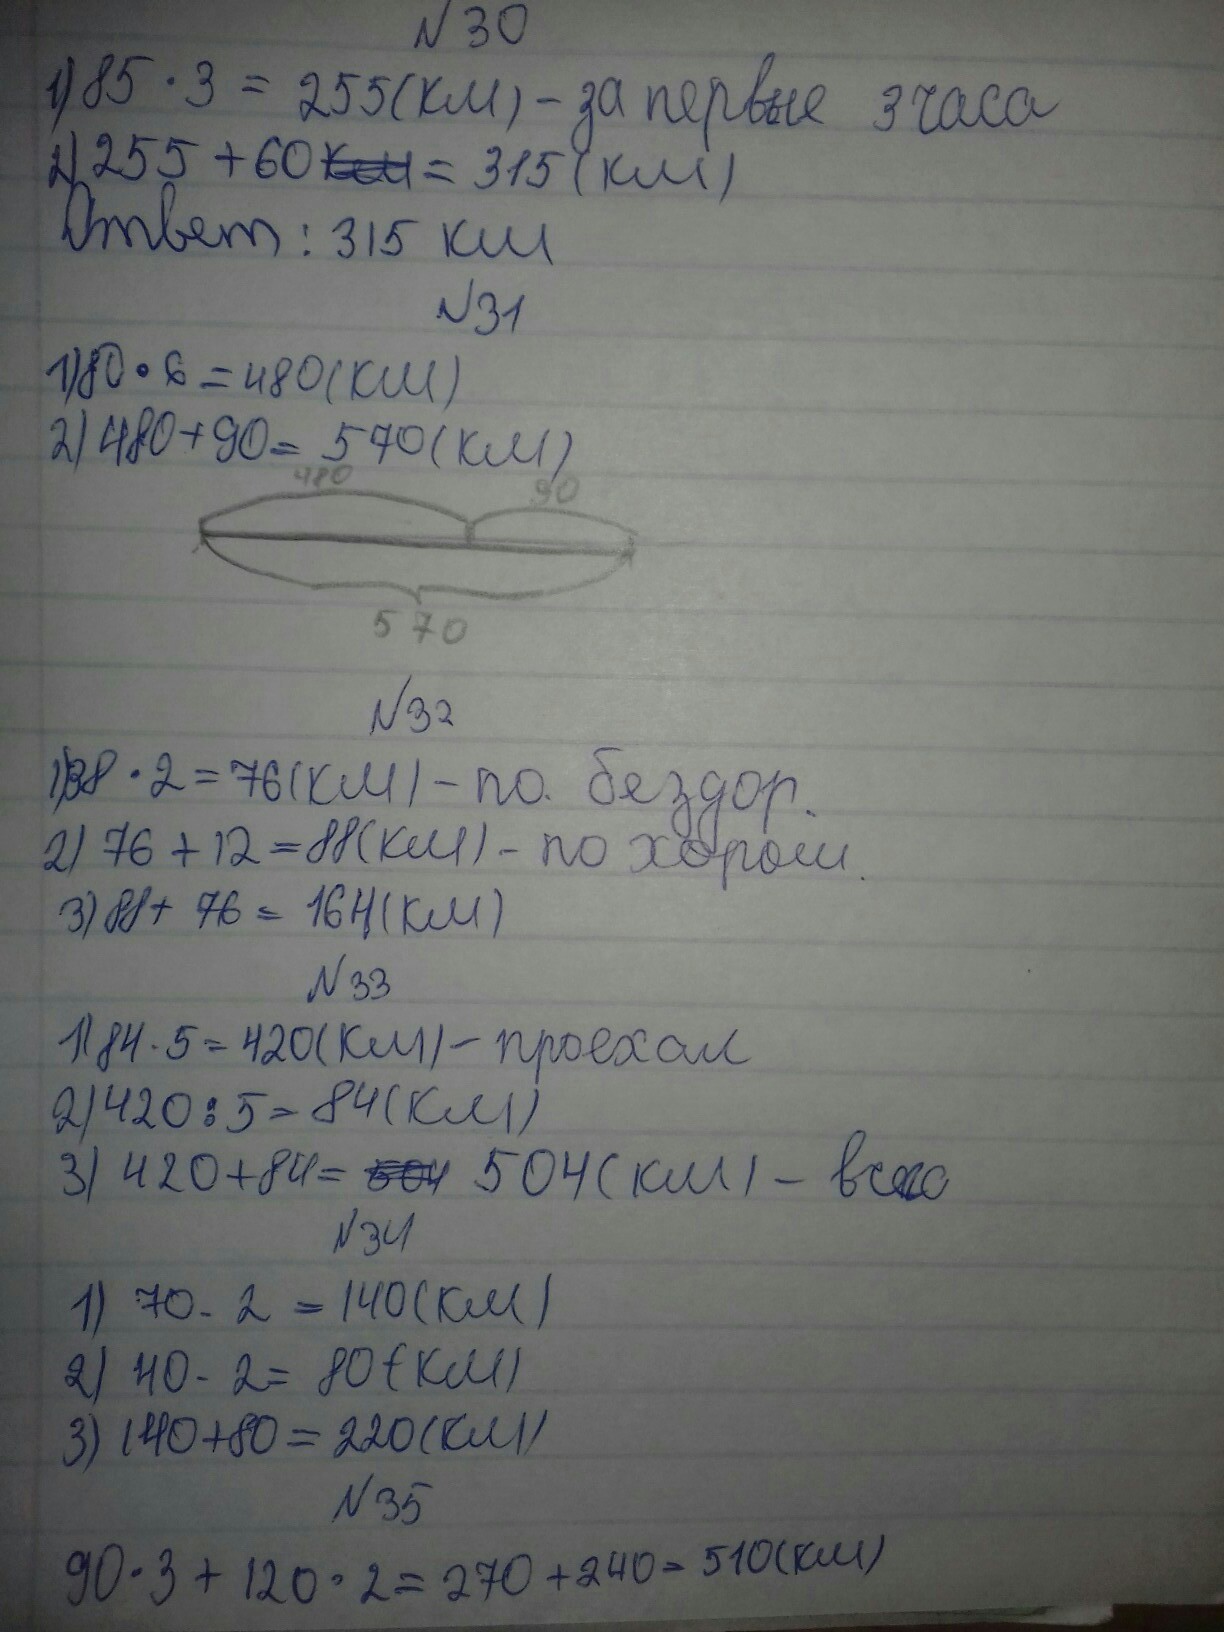 N30
1) 85 · 3 = 255(км) - за первые 3 часа
2) 255 + 60 = 315 (км)
Ответ: 315 км
N31
1) 80 · 6 = 480(км)
2) 480 + 90 = 570(км)
480 90
570
N32
1) 38 · 2 = 76(км) - по. бездор.
2) 76 + 12 = 88(км) - по хорош.
3) 88 + 76 = 164(км)
N33
1) 84 · 5 = 420(км) - проехал
2) 420 : 5 = 84(км)
3) 420 + 84 = 504 504(км) - всего
N34
1) 70 · 2 = 140(км)
2) 40 · 2 = 80(км)
3) 140 + 80 = 220(км)
N35
90 · 3 + 120 · 2 = 270 + 240 = 510(км)